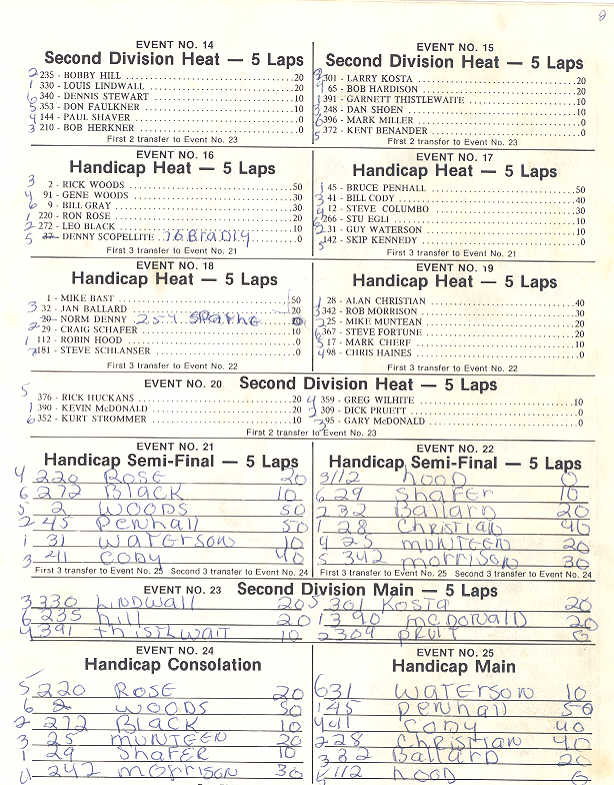 8
EVENT NO. 14
Second Division Heat — 5 Laps
2 235 - BOBBY HILL 20
1 330 - LOUIS LINDWALL 20
6 340 - DENNIS STEWART 10
5 353 - DON FAULKNER 10
4 144 - PAUL SHAVER 0
3 210 - BOB HERKNER 0
First 2 transfer to Event No. 23
EVENT NO. 15
Second Division Heat — 5 Laps
301 - LARRY KOSTA 20
65 - BOB HARDISON 20
1 391 - GARNETT THISTLEWAITE 10
248 - DAN SHOEN 10
396 - MARK MILLER 0
5 372 - KENT BENANDER 0
First 2 transfer to Event No. 23
EVENT NO. 16
Handicap Heat — 5 Laps
3 2 - RICK WOODS 50
4 91 - GENE WOODS 30
6 9 - BILL GRAY 30
1 220 - RON ROSE 20
2 272 - LEO BLACK 10
5 37 - DENNY SCOPELLITE 76 BRADLY 0
First 3 transfer to Event No. 21
EVENT NO. 17
Handicap Heat — 5 Laps
1 45 - BRUCE PENHALL 50
3 41 - BILL CODY 40
4 12 - STEVE COLUMBO 30
6 266 - STU EGLI 10
2 31 - GUY WATERSON 10
5 142 - SKIP KENNEDY 0
First 3 transfer to Event No. 21
EVENT NO. 18
Handicap Heat — 5 Laps
1 - MIKE BAST 50
3 32 - JAN BALLARD 20
20 - NORM DENNY 254 20
2 29 - CRAIG SCHAFER 10
1 112 - ROBIN HOOD 0
181 - STEVE SCHLANSER 0
First 3 transfer to Event No. 22
EVENT NO. 19
Handicap Heat — 5 Laps
1 28 - ALAN CHRISTIAN 40
3 342 - ROB MORRISON 30
2 25 - MIKE MUNTEAN 20
6 367 - STEVE FORTUNE 20
5 17 - MARK CHERF 10
4 98 - CHRIS HAINES 0
First 3 transfer to Event No. 22
EVENT NO. 20 Second Division Heat — 5 Laps
5 376 - RICK HUCKANS 20
1 390 - KEVIN McDONALD 20
6 352 - KURT STROMMER 10
4 359 - GREG WILHITE 10
309 - DICK PRUETT 0
395 - GARY McDONALD 0
First 2 transfer to Event No. 23
EVENT NO. 21
Handicap Semi-Final — 5 Laps
4 220 ROSE 20
6 272 BLACK 10
5 2 WOODS 50
2 45 PENHALL 50
1 31 WATERSON 10
3 41 CODY 40
First 3 transfer to Event No. 25 Second 3 transfer to Event No. 24
EVENT NO. 22
Handicap Semi-Final — 5 Laps
3 112 HOOD 0
6 29 SHAFER 10
2 32 Ballard 20
1 28 Christian 40
4 25 MUNTEEN 20
5 342 morrison 30
First 3 transfer to Event No. 25 Second 3 transfer to Event No. 24
EVENT NO. 23 Second Division Main — 5 Laps
3 330 LINDWALL 20
6 235 hill 20
4 391 thistlwait 10
5 301 KOSTA 20
1 390 mcDONALD 20
2 309 PRUIT 0
EVENT NO. 24
Handicap Consolation
5 220 ROSE 20
6 2 WOODS 50
2 272 BLACK 10
3 25 MUNTEEN 20
1 29 SHAFER 10
4 242 morrison 30
EVENT NO. 25
Handicap Main
6 31 WATERSON 10
1 45 PENHALL 50
4 41 CODY 40
2 28 Christian 40
3 32 Ballard 20
112 HOOD 0